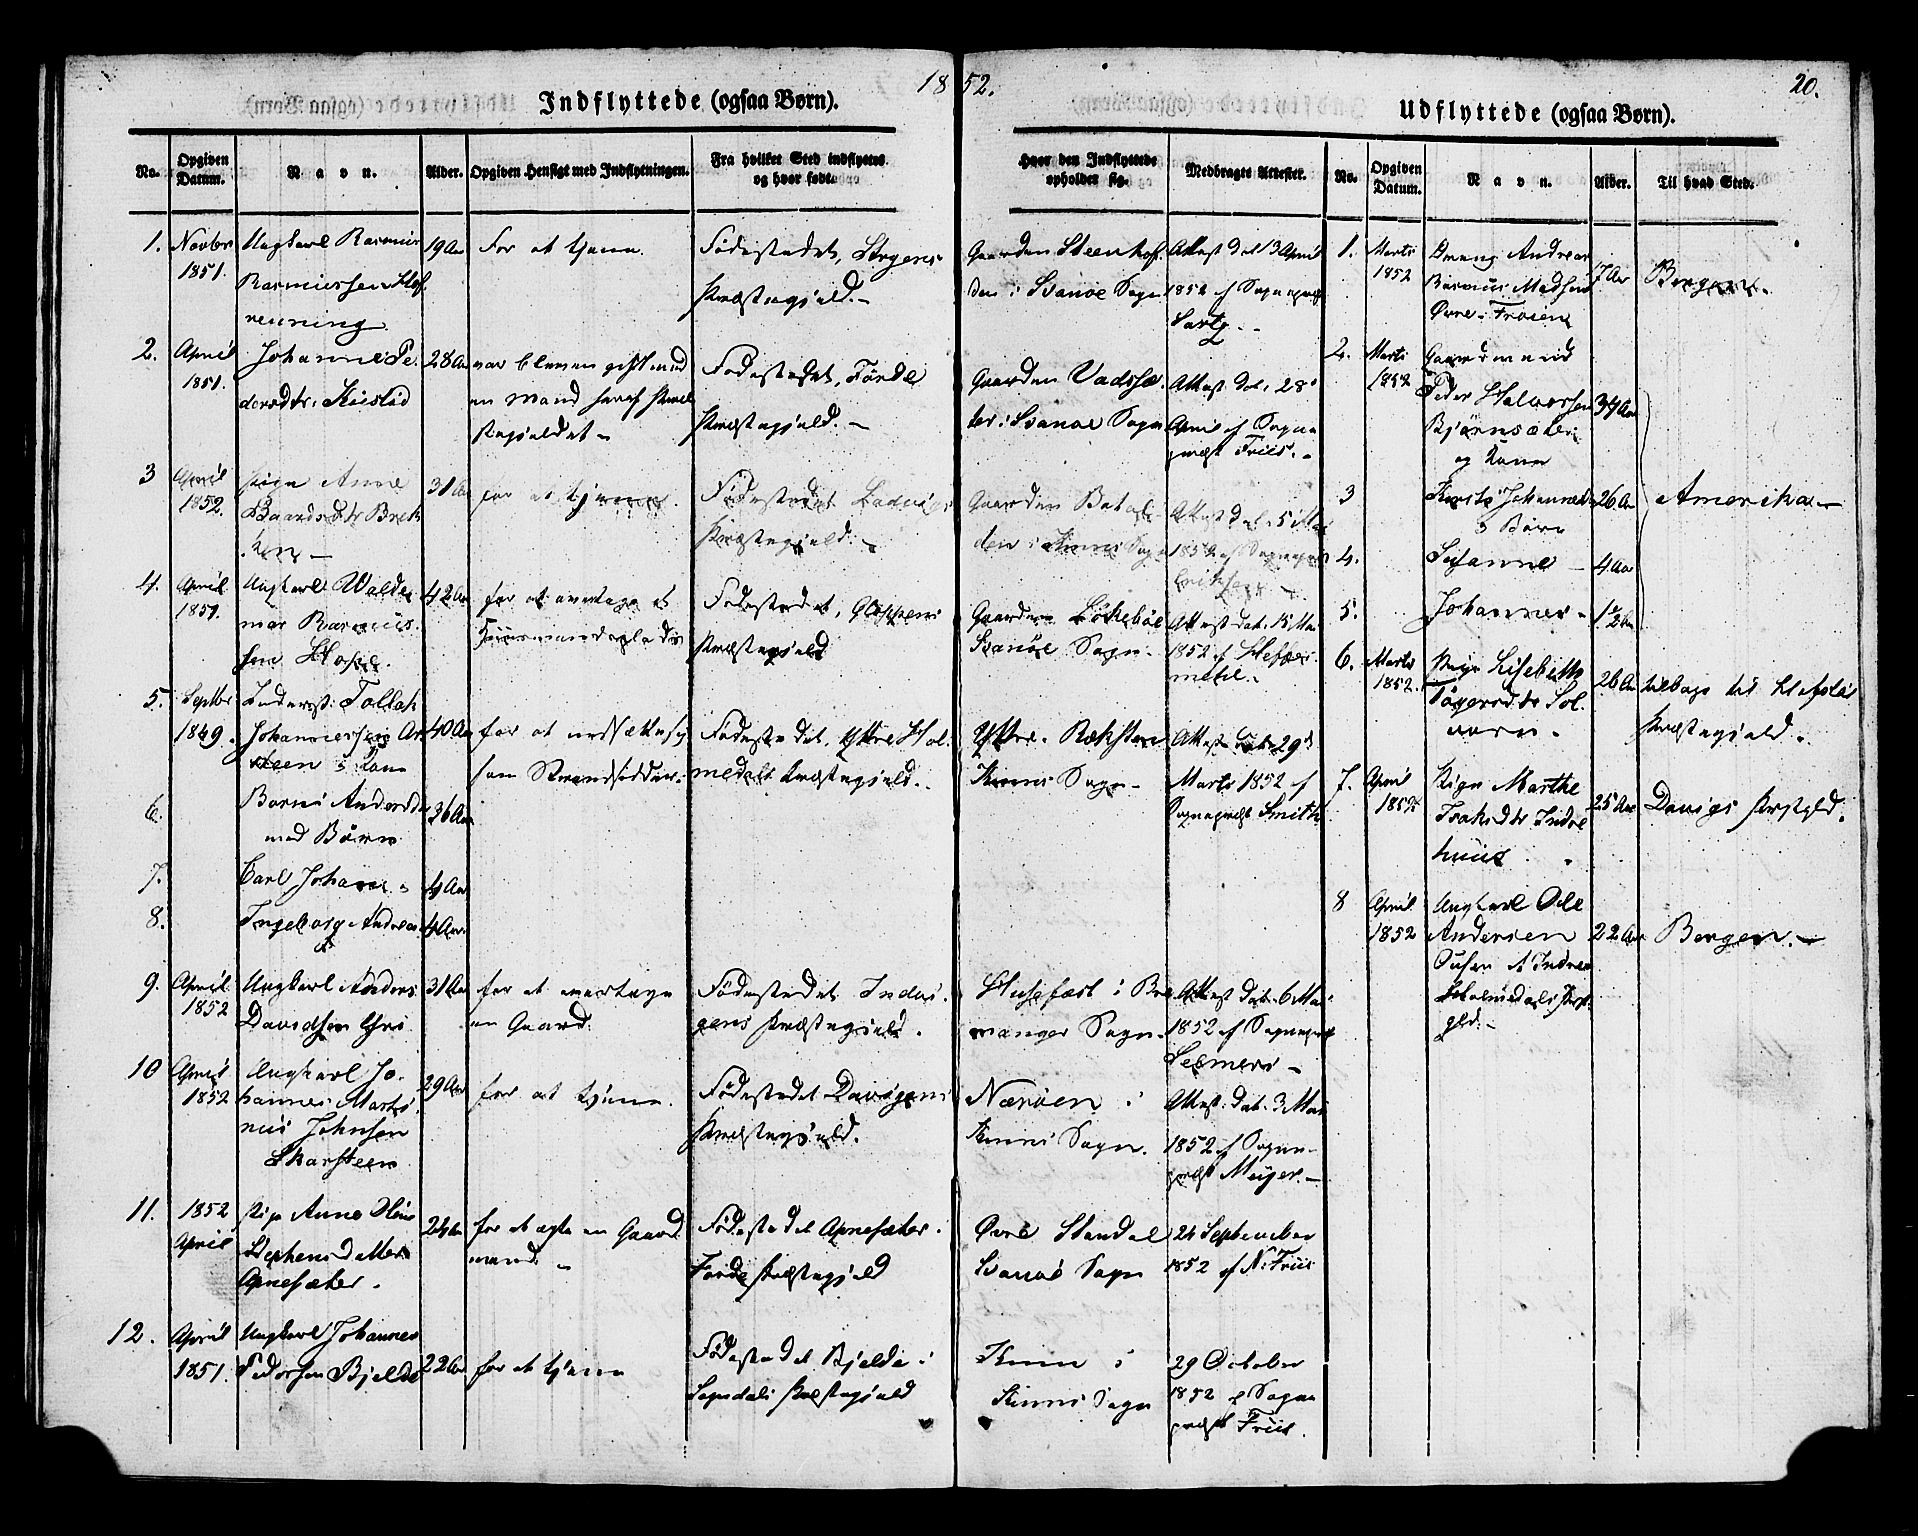 1852.
20.
Indflyttede (ogsaa Børn).
Udflyttede (ogsaa Børn).
No.
Opgiven Datum.
Navn.
Alder.
Opgiven Hensigt med Indflytningen.
Fra hvilket Sted indflyttet og hvor født.
Hvor den Indflyttede opholder sig.
Medbragte Attester.
No.
Opgiven Datum.
Navn.
Alder.
Til hvad Sted.
1. Novbr 1851.
Ungkarl Rasmus
Rasmussen
19 Aar
For at tjene.
Fødestedet,
Præstegjeld.-
Gaarden Steenhof
den i Svanøe Sogn
Attest dat 13 April
1852 af Sognepræst
2. April 1851.
Johanne Pe
dersdtr:
28 Aar
var bleven gift med
en Mand her af Præ
stegjeldet-
Fødestedet, Førde
Præstegjeld.-
Gaarden Vadsæ
ter i Svanøe Sogn
Attest dat. 28
af Sogne
præst Friis.-
3 April 1852.
Pige Anne
Baardsdtr Brek
ken-
31 Aar
for at tjene
Fødestedet
Præstegjeld.-
Gaarden Batal
den i Kinns Sogn
Attest dat. 5 Mai
1852 af Sognepræst
4. April 1851.
Ungkarl Walde
mar Rasmus
sen
42 Aar
for at overtage et
Huusmandsplads
Fødestedet, Gloppens
Præstegjeld
Gaarden Løkebøe
Svanøe Sogn-
Attest dat. 15 Mai
1852 af
5. Septbr 1849.
Tollak
Johannessen Ar
steen & Kone
40 Aar
for at nedsætte sig
som Strandsidder.
Fødestedet, Yttre Hol
medals Præstegjeld..
Yttre Reksten
Kinns Sogn-
Attest dat 29d
Marts 1852 af
Sognepræst Smith
6.
Andersdtr
med Børn
36 Aar
7.
Carl Johan
4 Aar
8.
Ingeborg Andrea
4 Aar
9. April 1852
Ungkarl Anders
Davidsen
31 Aar
for at overtage
en Gaard.
Fødestedet Indvi
gens Præstegjeld.
Husefæst i Bre
manger Sogn
Attest dat. 6 Mai
1852 af Sognepræst
10 April 1852
Ungkarl Jo
hannes Marti
nus Johnsen
Skarsteen
29 Aar
for at tjene.
Fødestedet Davigens
Præstegjeld.
Nærøen i
Kinns Sogn.
Attest. dat. 3 Mai
1852 af Sogne-
præst Meyer.-
11. 1852 April
Pige Anne
Stephensdatter
Apnesæter.
24 Aar
for at ægte en Gaard
mand.-
Fødestedet Apnesæter.
Førde Præstegjeld
Øvre Standal
Svanøe Sogn
24 September
1852 af N. Friis
12. April 1851.
Ungkarl Johannes
Pedersen Bjelde
22 Aar
for at tjene
Fødestedet Bjelde i
Præstegjeld
Kinn i
Kinns Sogn
29 October
1852 af Sogne
præst Friis.
1. Marts 1852
Dreng Andreas
Rasmus Madsen
Øvre Frøien
7 Aar
Bergen.
2. Marts 1852
Gaardmand
Peder Halvorsen
Bjørnsæter
og Kone
34 Aar
3
Johannesd
& Børn
26 Aar
Amerika-
4.
Susanne-
4 Aar
5.
Johannes-
1½ Aar
6. Marts 1852.
Pige Lisebeth
Sol
26 Aar
tilbage til
Præstegjeld.
7. April 1852
Pige Marthe
Isaksdtr Indre
huus
25 Aar
Davigs Prstgld.
8 April 1852
Ungkarl Ole
Andersen
22 Aar
Bergen.-
Holmedals Prst
gld.-